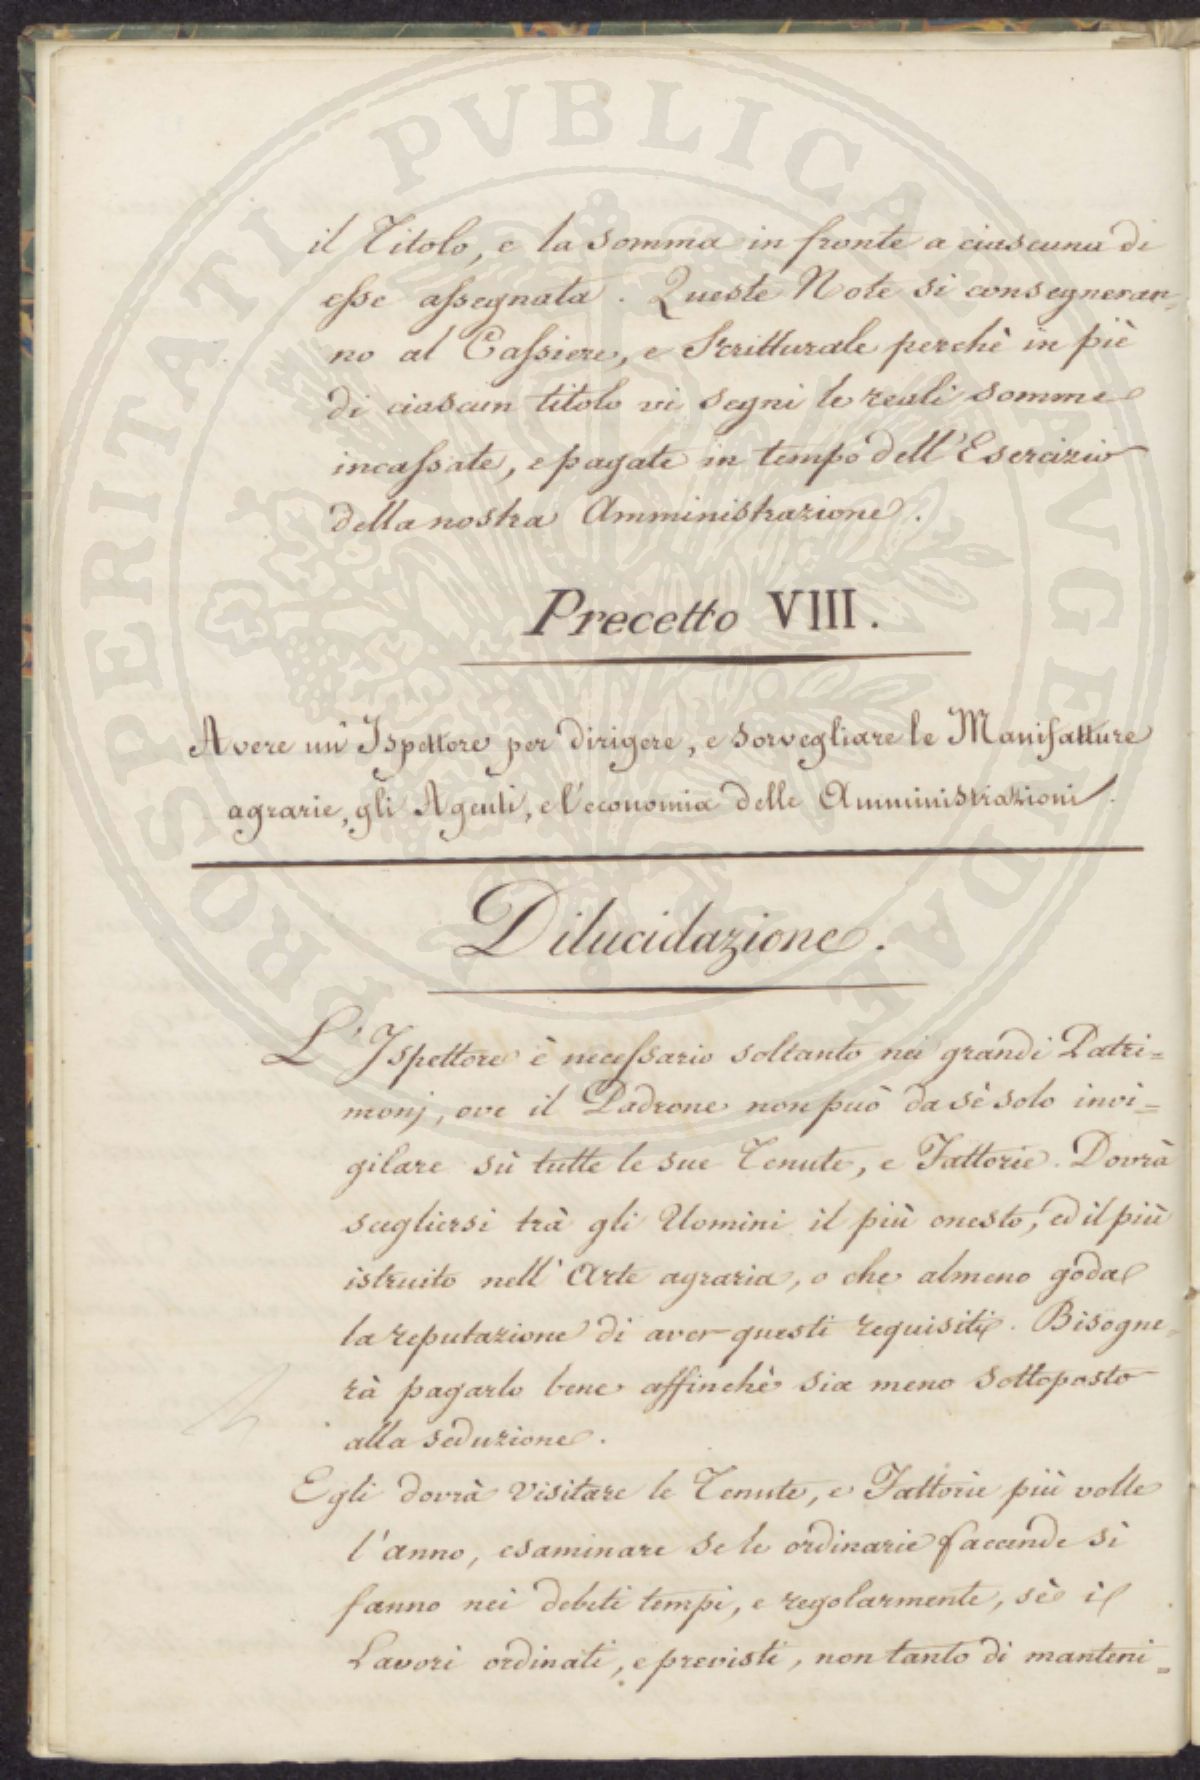 il Titolo, e la somma in fronte a ciascuna di
esse assegnata. Queste Note si consegneran=
no al Cassiere, e Scritturale perchè in piè
di ciascun titolo vi segni le reali somme
incassate, e pagate in tempo dell'Esercizio
della nostra Amministrazione.
Precetto VIII.
Avere un Ispettore per dirigere, e sorvegliare le Manifatture
agrarie, gli Agenti, e l'economia delle Amministrazioni.
Dilucidazione.
L'Ispettore è necessario soltanto nei grandi Patri=
monj, ove il Padrone non può da sè solo invi=
gilare sù tutte le sue Tenute, e Fattorie. Dovrà
scegliersi trà gli Uomini il più onesto, ed il più
istruito nell'Arte agraria, o che almeno goda
la reputazione di aver questi requisiti. Bisogne=
rà pagarlo bene affinchè sia meno sottoposto
alla seduzione.
Egli dovrà visitare le Tenute, e Fattorie più volte
l'anno, esaminare se le ordinarie faccende si
fanno nei debiti tempi, e regolarmente, sè i
Lavori ordinati, e previsti, non tanto di manteni=
PROSPERITATI PVBLICAE AVGENDAE